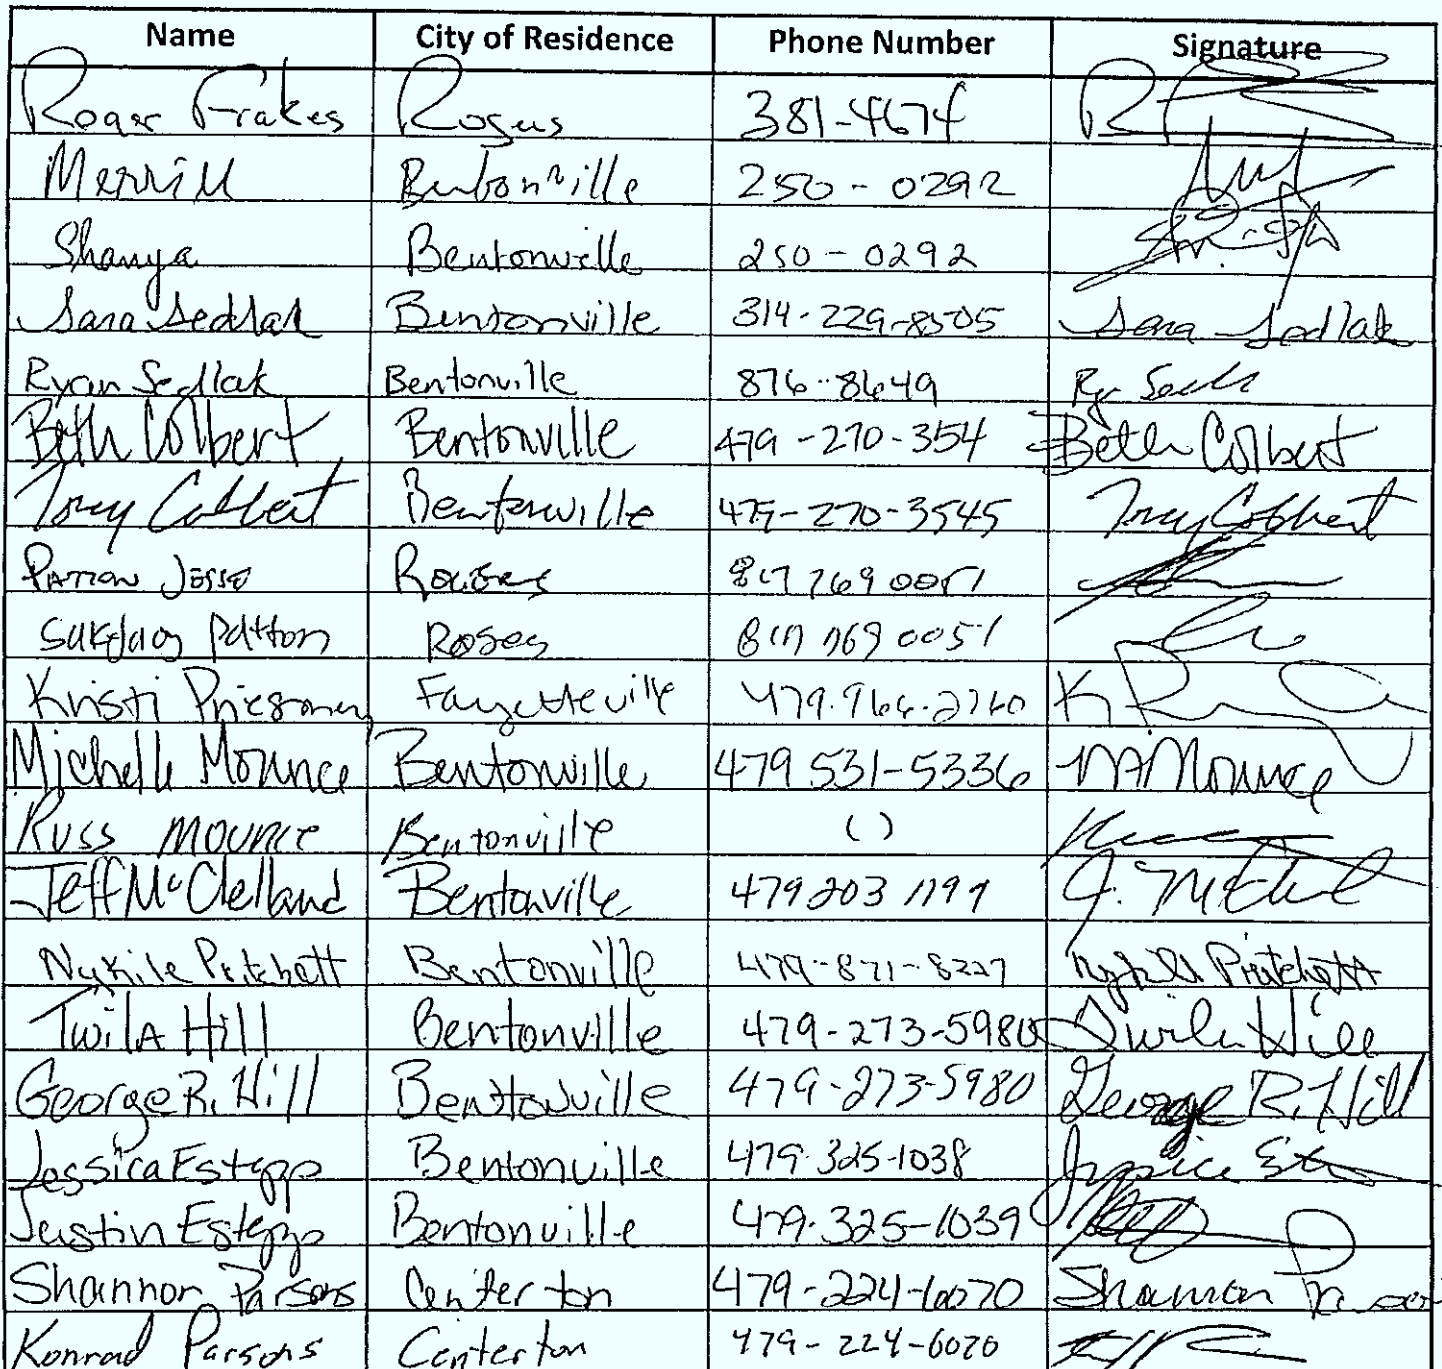 Name City of Residence Phone Number Signature
Roger Frakes Rogers 381-4674
Merrill Bentonville 250-0292
Shanya Bentonville 250-0292
Sara Sedlak Bentonville 314-229-8505 Sara Sedlak
Ryan Sedlak Bentonville 876-8649
Beth Colbert Bentonville 479-270-354 Beth Colbert
Troy Colbert Bentonville 479-270-3545 Troy Colbert
Patton Jesse Rogers 817 769 0051
Patton Rogers 817 769 0051
Kristi Fayetteville
Michelle Mounce Bentonville 479 531-5336 Mounce
Russ Mounce Bentonville ( )
Jeff McClelland Bentonville 479 203
Nykile Pritchett Bentonville 479-871-8227 Nykile Pritchett
Twila Hill Bentonville 479-273-5980 Twila Hill
George R. Hill Bentonville 479-273-5980 George R. Hill
Jessica Estepp Bentonville 479-325-1038 Jessica
Justin Estepp Bentonville 479-325-1039
Shannon Parsons Centerton 479-224-6070 Shannon
Konrad Parsons Centerton 479-224-6070